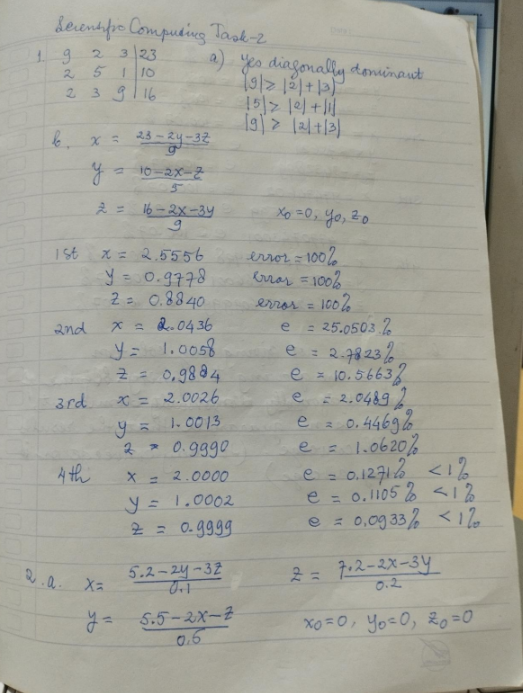 Scientific Computing Task-2
1 9 2 3 | 23 a) yes diagonally dominant
2 5 1 | 10 |9| ≥ |2|+|3|
2 3 9 | 16 |5| ≥ |2|+|1|
|9| ≥ |2|+|3|
b. x = 23-2y-3z / 9
y = 10-2x-z / 5
z = 16-2x-3y / 9 x0=0, y0, z0
1st x = 2.5556 error = 100%
y = 0.9778 error = 100%
z = 0.8840 error = 100%
2nd x = 2.0436 e = 25.0503%
y = 1.0058 e = 2.7823%
z = 0.9884 e = 10.5663%
3rd x = 2.0026 e = 2.0489%
y = 1.0013 e = 0.4469%
z = 0.9990 e = 1.0620%
4th x = 2.0000 e = 0.1271% <1%
y = 1.0002 e = 0.1105% <1%
z = 0.9999 e = 0.0933% <1%
2.a. x= 5.2-2y-3z / 0.1 z = 7.2-2x-3y / 0.2
y = 5.5-2x-z / 0.5 x0=0, y0=0, z0=0